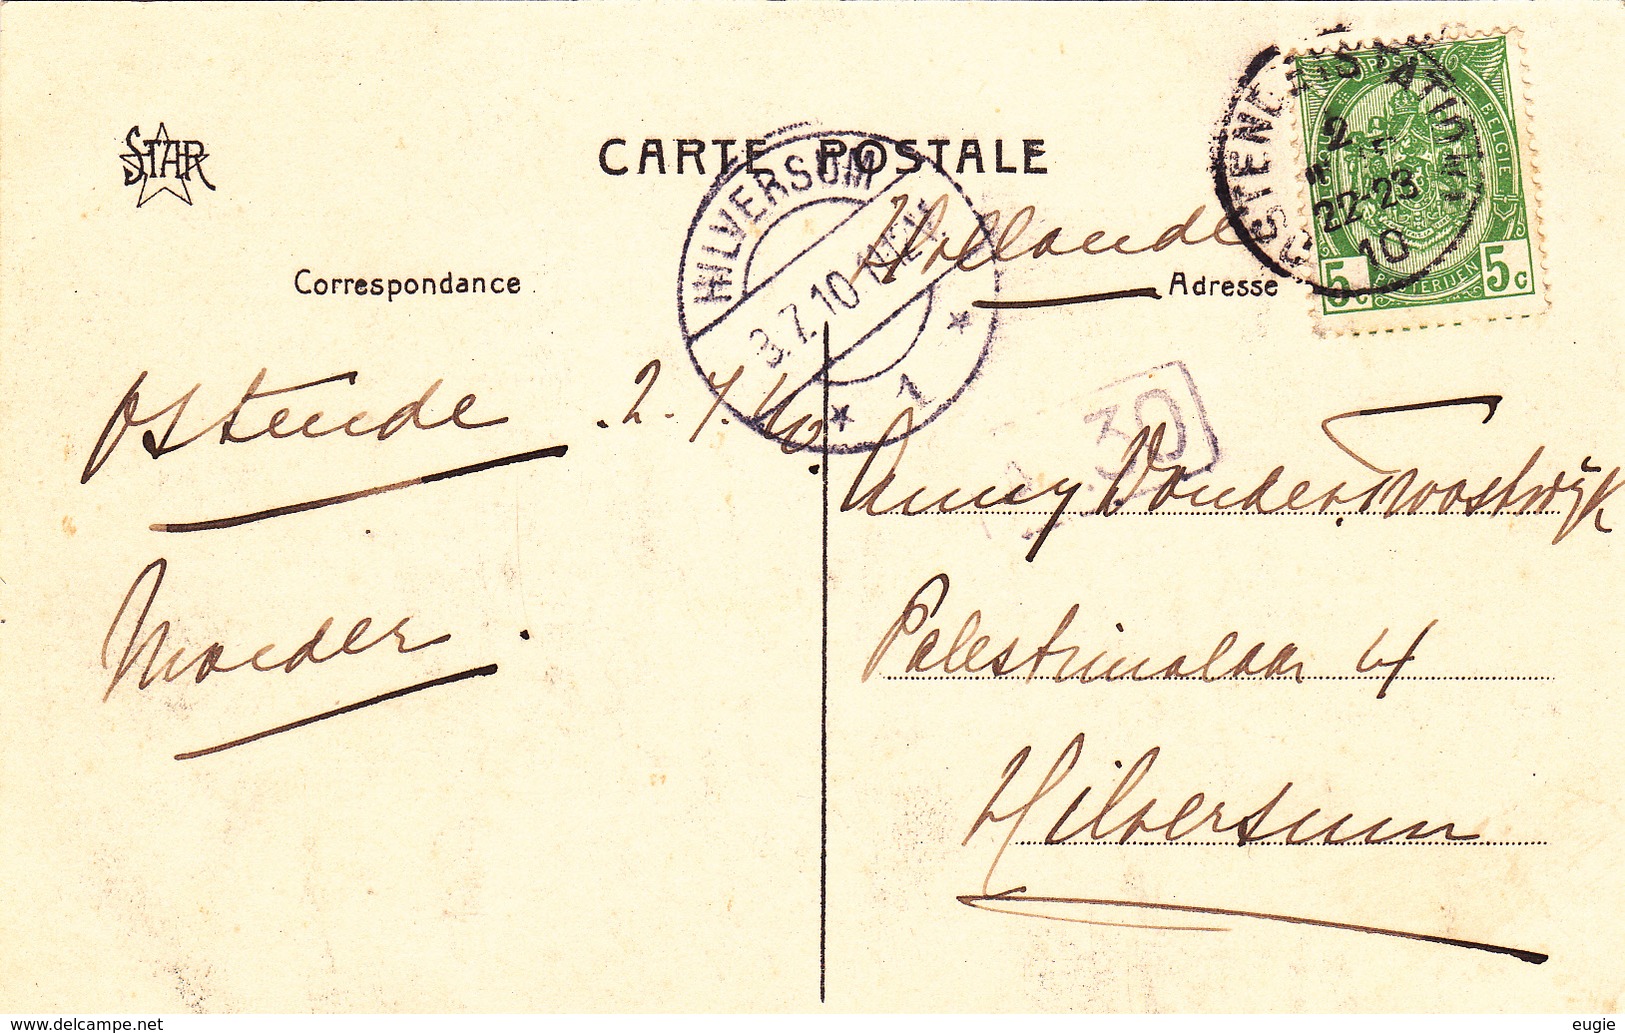 STAR
CARTE POSTALE
HILVERSUM
3.7.10
1
OSTENDE STATION
2
22-23
10
POSTES BELGIE
POSTERIJEN
5c 5c
Hollande
Correspondance
Adresse
30
Ostende . 2.7.10.
Anny Vonder Troostwijk
Moeder .
Palestrinalaan 4
Hilversum
www.delcampe.net
eugie